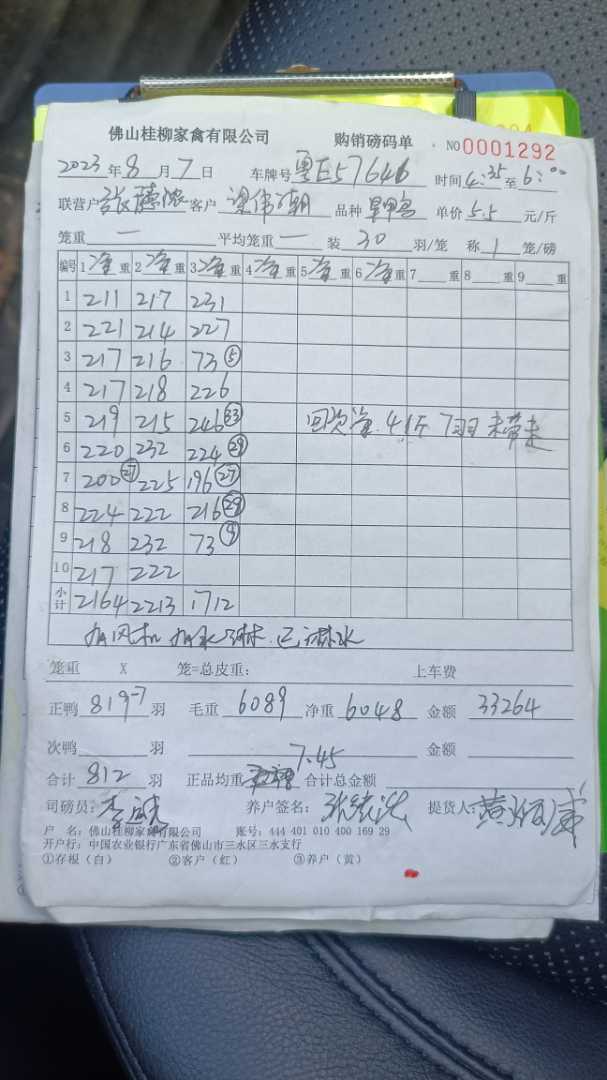 佛山桂柳家禽有限公司 购销磅码单 NO0001292
2023年8月7日 车牌号粤E57646 时间4:35至6:00
联营户 客户梁伟潮 品种 单价5.5元/斤
笼重一 平均笼重一 装30羽/笼 称1笼/磅
编号 1净重 2净重 3净重 4净重 5净重 6净重 7 重 8 重 9 重
1 211 217 231
2 221 214 227
3 217 216 73⑤
4 217 218 226
5 219 215 246㉝ 回资净.41斤 7羽 未带走
6 220 232 224㉙
7 200㉗ 225 196㉗
8 224 222 216㉙
9 218 232 73⑨
10 217 222
小计 2164 2213 1712
有风机 有水淋.已淋水
笼重 X 笼=总皮重： 上车费
正鸭819-7羽 毛重6089 净重6048 金额33264
次鸭 羽 金额
合计812羽 正品均重7.45 合计总金额
司磅员： 养户签名： 提货人：
户 名：佛山桂柳家禽有限公司 账号：444 401 010 400 169 29
开户行：中国农业银行广东省佛山市三水区三水支行
①存根（白） ②客户（红） ③养户（黄）